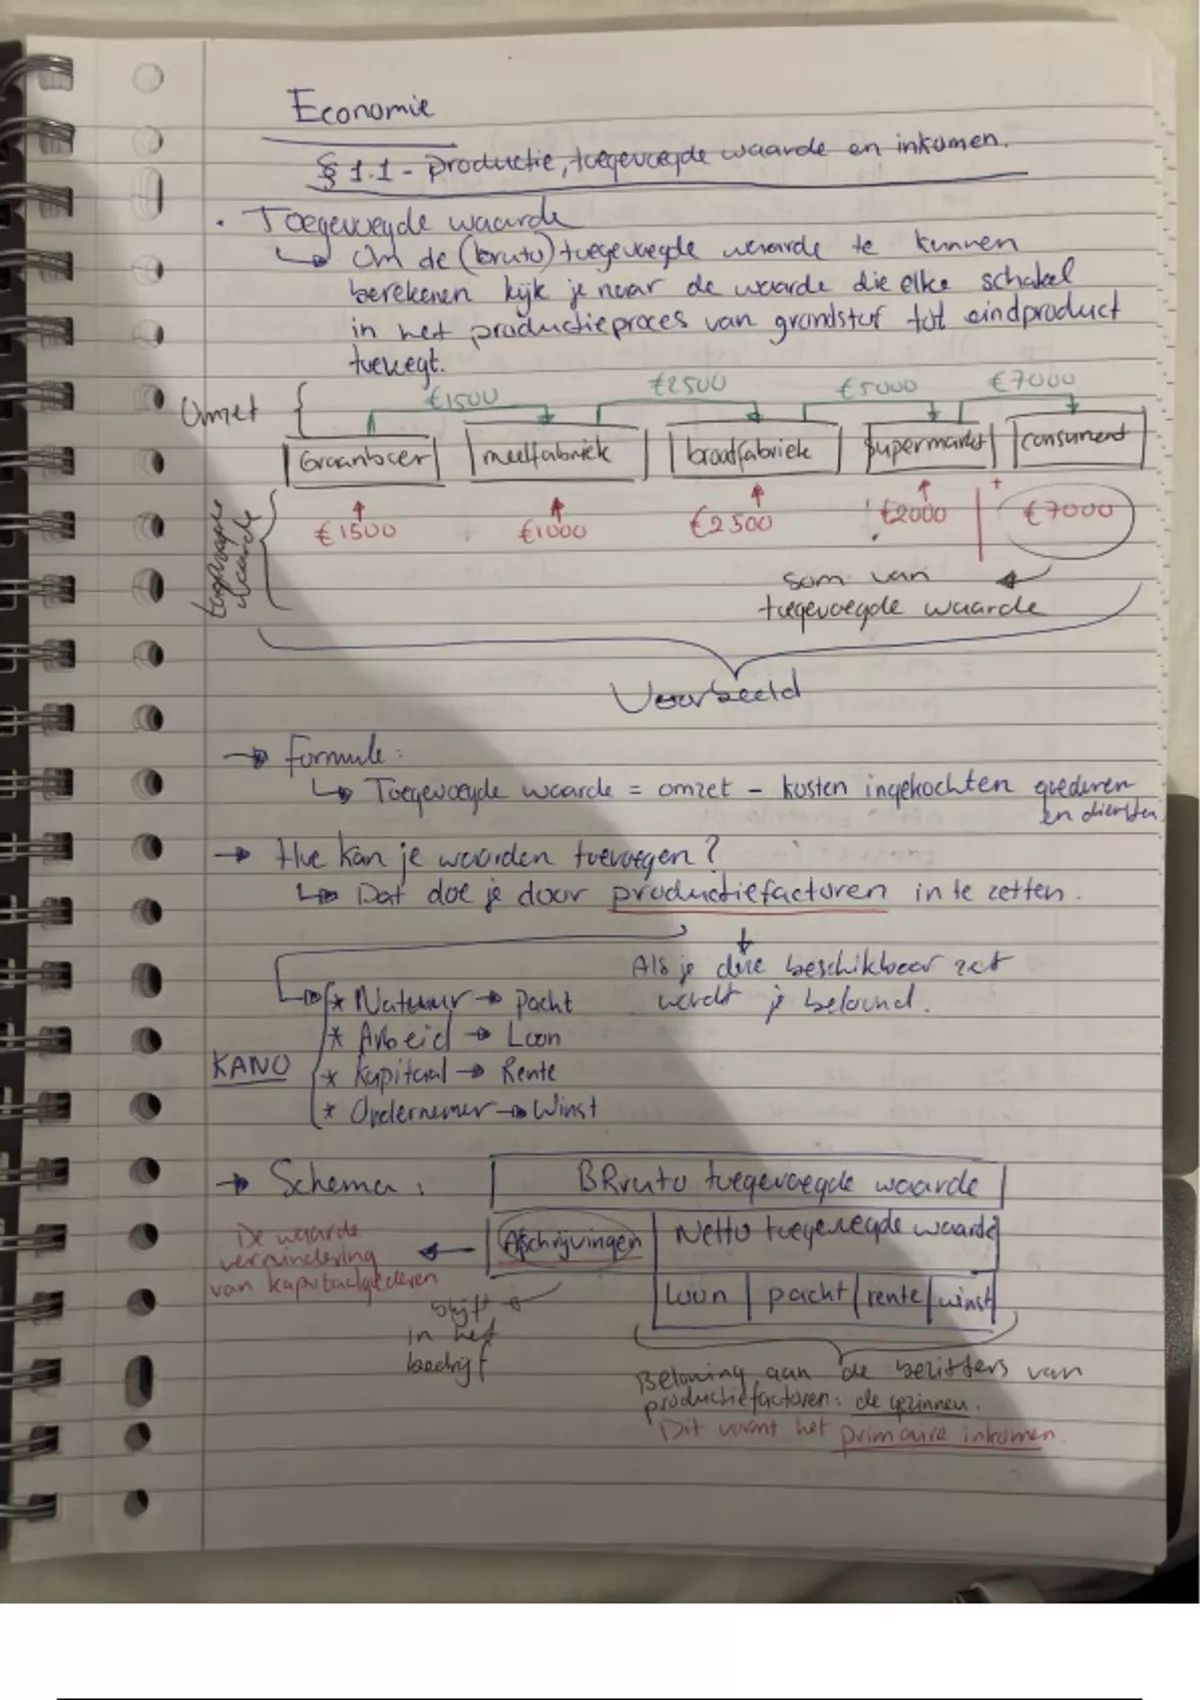 Economie
§ 1.1 - productie, toegevoegde waarde en inkomen.
• Toegevoegde waarde
↳ Om de (bruto) toegevoegde waarde te kunnen
berekenen kijk je naar de waarde die elke schakel
in het productieproces van grondstof tot eindproduct
toevoegt.
€1500 €2500 €5000 €7000
Omzet {
Graanboer meelfabriek broodfabriek supermarkt consument
toegevoegde waarde
€1500 €1000 €2500 €2000 + €7000
som van
toegevoegde waarde
Voorbeeld
→ formule:
↳ Toegevoegde waarde = omzet - kosten ingekochten goederen
en diensten
→ Hoe kan je waarden toevoegen?
↳ Dat doe je door productiefactoren in te zetten.
Als je die beschikbaar zet
wordt je beloond.
KANO
* Natuur → pacht
* Arbeid → Loon
* Kapitaal → Rente
* Ondernemer → Winst
→ Schema:
BRruto toegevoegde waarde
Afschrijvingen Netto toegevoegde waarde
Loon pacht rente winst
De waarde
vermindering
van kapitaalgoederen
blijft
in het
bedrijf
Beloning aan de bezitters van
productiefactoren: de gezinnen.
Dit vormt het primaire inkomen.